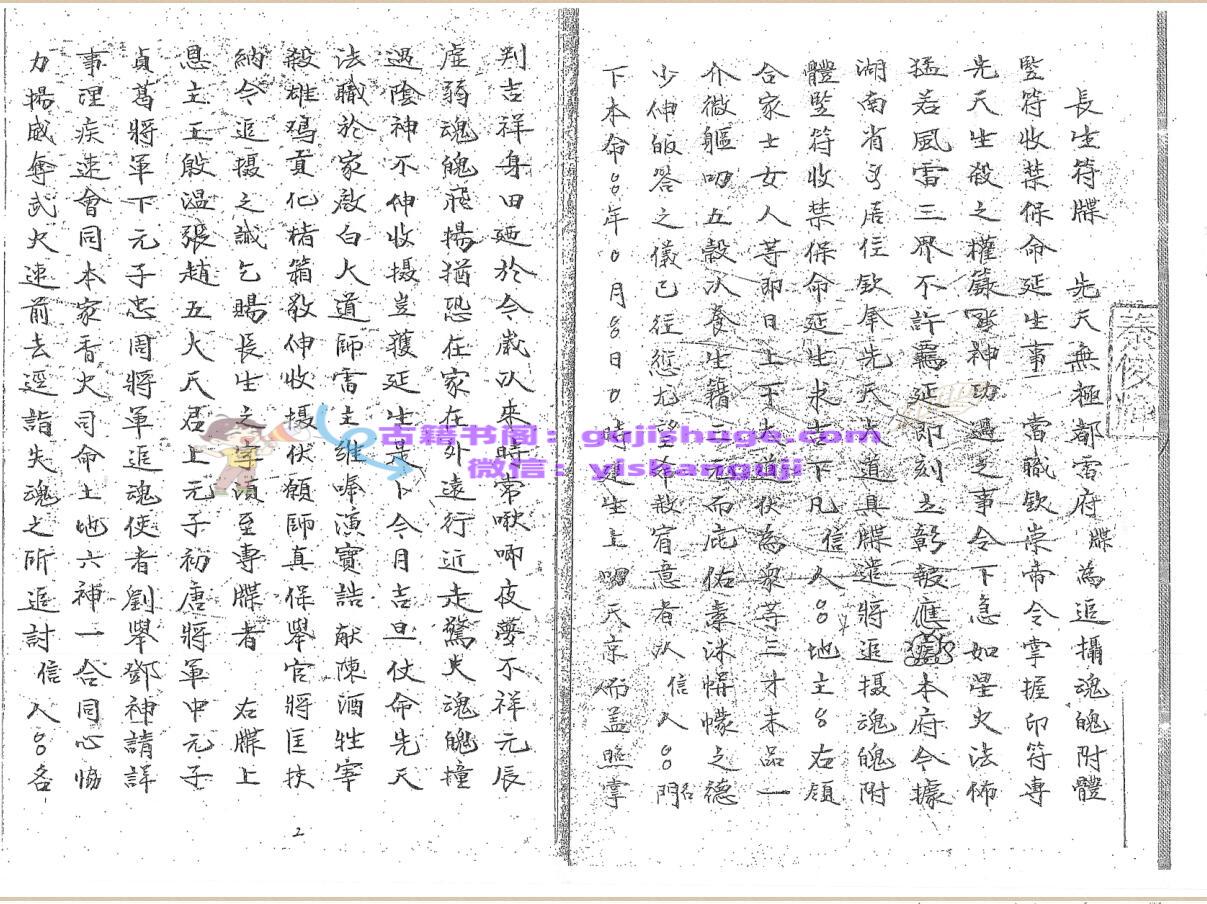 長生符牒　先天無極都雷府 牒 為追攝魂魄附體
監符收禁保命延生事　當職欽崇帝令掌握印符専
先天生殺之權籙神功遇之事令下急如星火法佈
猛若風雷三界不許覊延即刻立彰報應本府今據
湖南省 居住欽奉先天大道具牒遣將追摄魂魄附
體監符收禁保命延生求吉下凡信人 地主 右領
合家士女人等即日上干大道伏為衆等三才末品一
介微軀叨五穀以養生籍三元而庇佑 沐幈幪之德
少伸皈答之儀已往愆尤望希赦宥意者以信人 名門
下本命 年 月 日 時建生上 天京 盖照掌
判吉祥身田廸於今歲以來時常啾唧夜夢不祥元辰
虚弱魂魄飛揚猶恐在家在外遠行近走驚失魂魄撞
遇陰神不伸收摄豈獲延生是卜今月吉旦仗命先天
法職於家啟白大道師雷主维 演寶誥献陳酒牲宰
殺雄鸡貢化楮箱敬伸收摄伏願師真保舉官將匡扶
納今追摄之誠乞賜長生之 須至専牒者　右牒上
恩主王殷温張趙五大天君上元子初唐將軍中元子
貞葛將軍下元子忠周將軍追魂使者劉舉鄧神請詳
事理疾速會同本家香火司命土地六神一合同心協
力揚威奪武火速前去逕詣失魂之所追討信人 各
2
秦俊
古籍书阁：gujishuge.com
微信：yishanguji